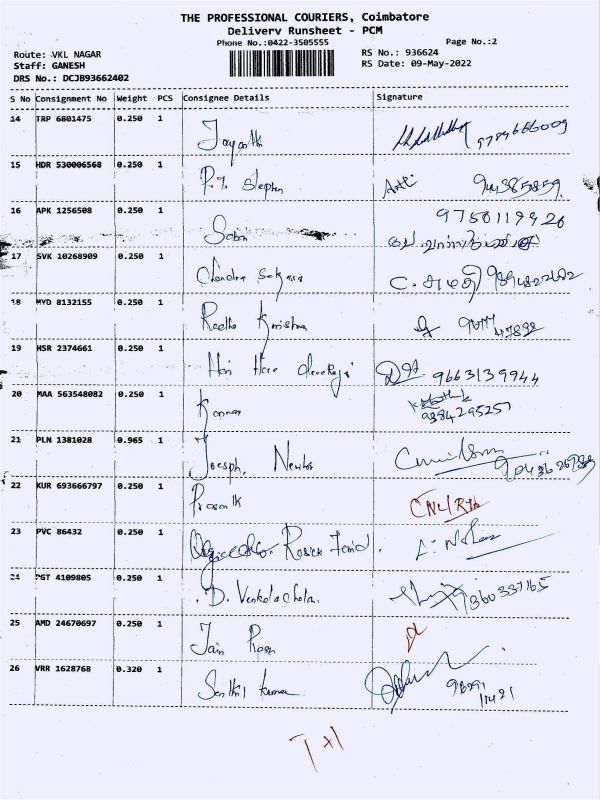 THE PROFESSIONAL COURIERS, Coimbatore
Delivery Runsheet - PCM
Phone No.:0422-3505555
Page No.:2
Route: VKL NAGAR
RS No.: 936624
Staff: GANESH
RS Date: 09-May-2022
DRS No.: DCJB93662402
S No Consignment No Weight PCS Consignee Details Signature
14 TRP 6801475 0.250 1 Jayanthi 9789666009
15 HDR 530006568 0.250 1 P.J. Stephen
16 APK 1256508 0.250 1 9750119920
17 SVK 10268909 0.250 1 Chandra Sekara
18 MYD 8132155 0.250 1 Krishna
19 HSR 2374661 0.250 1 Hari Hara 9663139944
20 MAA 563548082 0.250 1 Kannan 9384295257
21 PLN 1381028 0.965 1 Joesph. Newton
22 KUR 693666797 0.250 1 Prasanth
23 PVC 86432 0.250 1
24 PGT 4109805 0.250 1 D. Venkatachala. 9360337165
25 AMD 24670697 0.250 1 Jain
26 VRR 1628768 0.320 1 Senthil Kumar